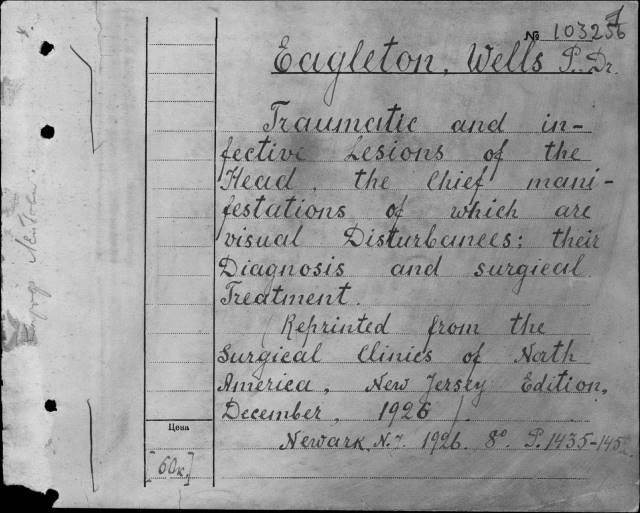 № 103256
Eagleton, Wells P. Dr.
Traumatic and in-
fective Lesions of the
Head, the Chief mani-
festations of which are
visual Disturbances; their
Diagnosis and surgical
Treatment.
(Reprinted from the
Surgical Clinics of North
America, New Jersey Edition,
December, 1926).
Newark, N.J. 1926. 8°. P. 1435-145
Цена
[60к.]